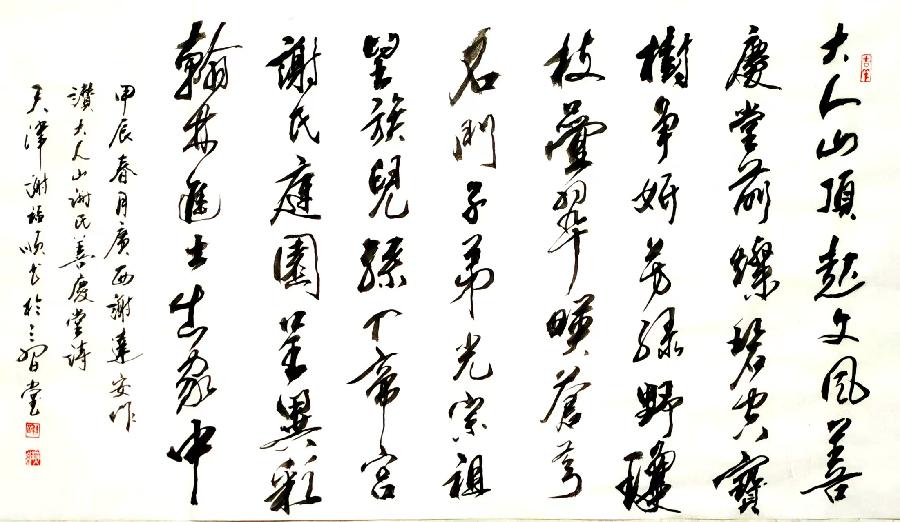 大人山頂起文风善
慶堂前燦碧空寶
樹争妍芳綠野瓊
枝疊翠暎蒼穹
名門子弟光宗祖
望族兒孫下帝宮
謝氏庭園呈異彩
翰林進士出家中
甲辰春月廣西謝達安作
讚大人山謝氏善慶堂詩
天津謝福順書於三習堂